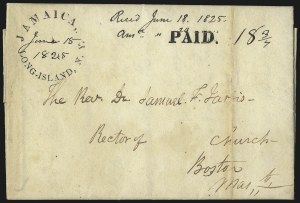 JAMAICA, N.Y.
June 15
1825
LONG-ISLAND,
Recd June 18. 1825.
PAID.
18 3/4
The Revd Dr Samuel F. Jarvis
Rector of Church
Boston
Mass